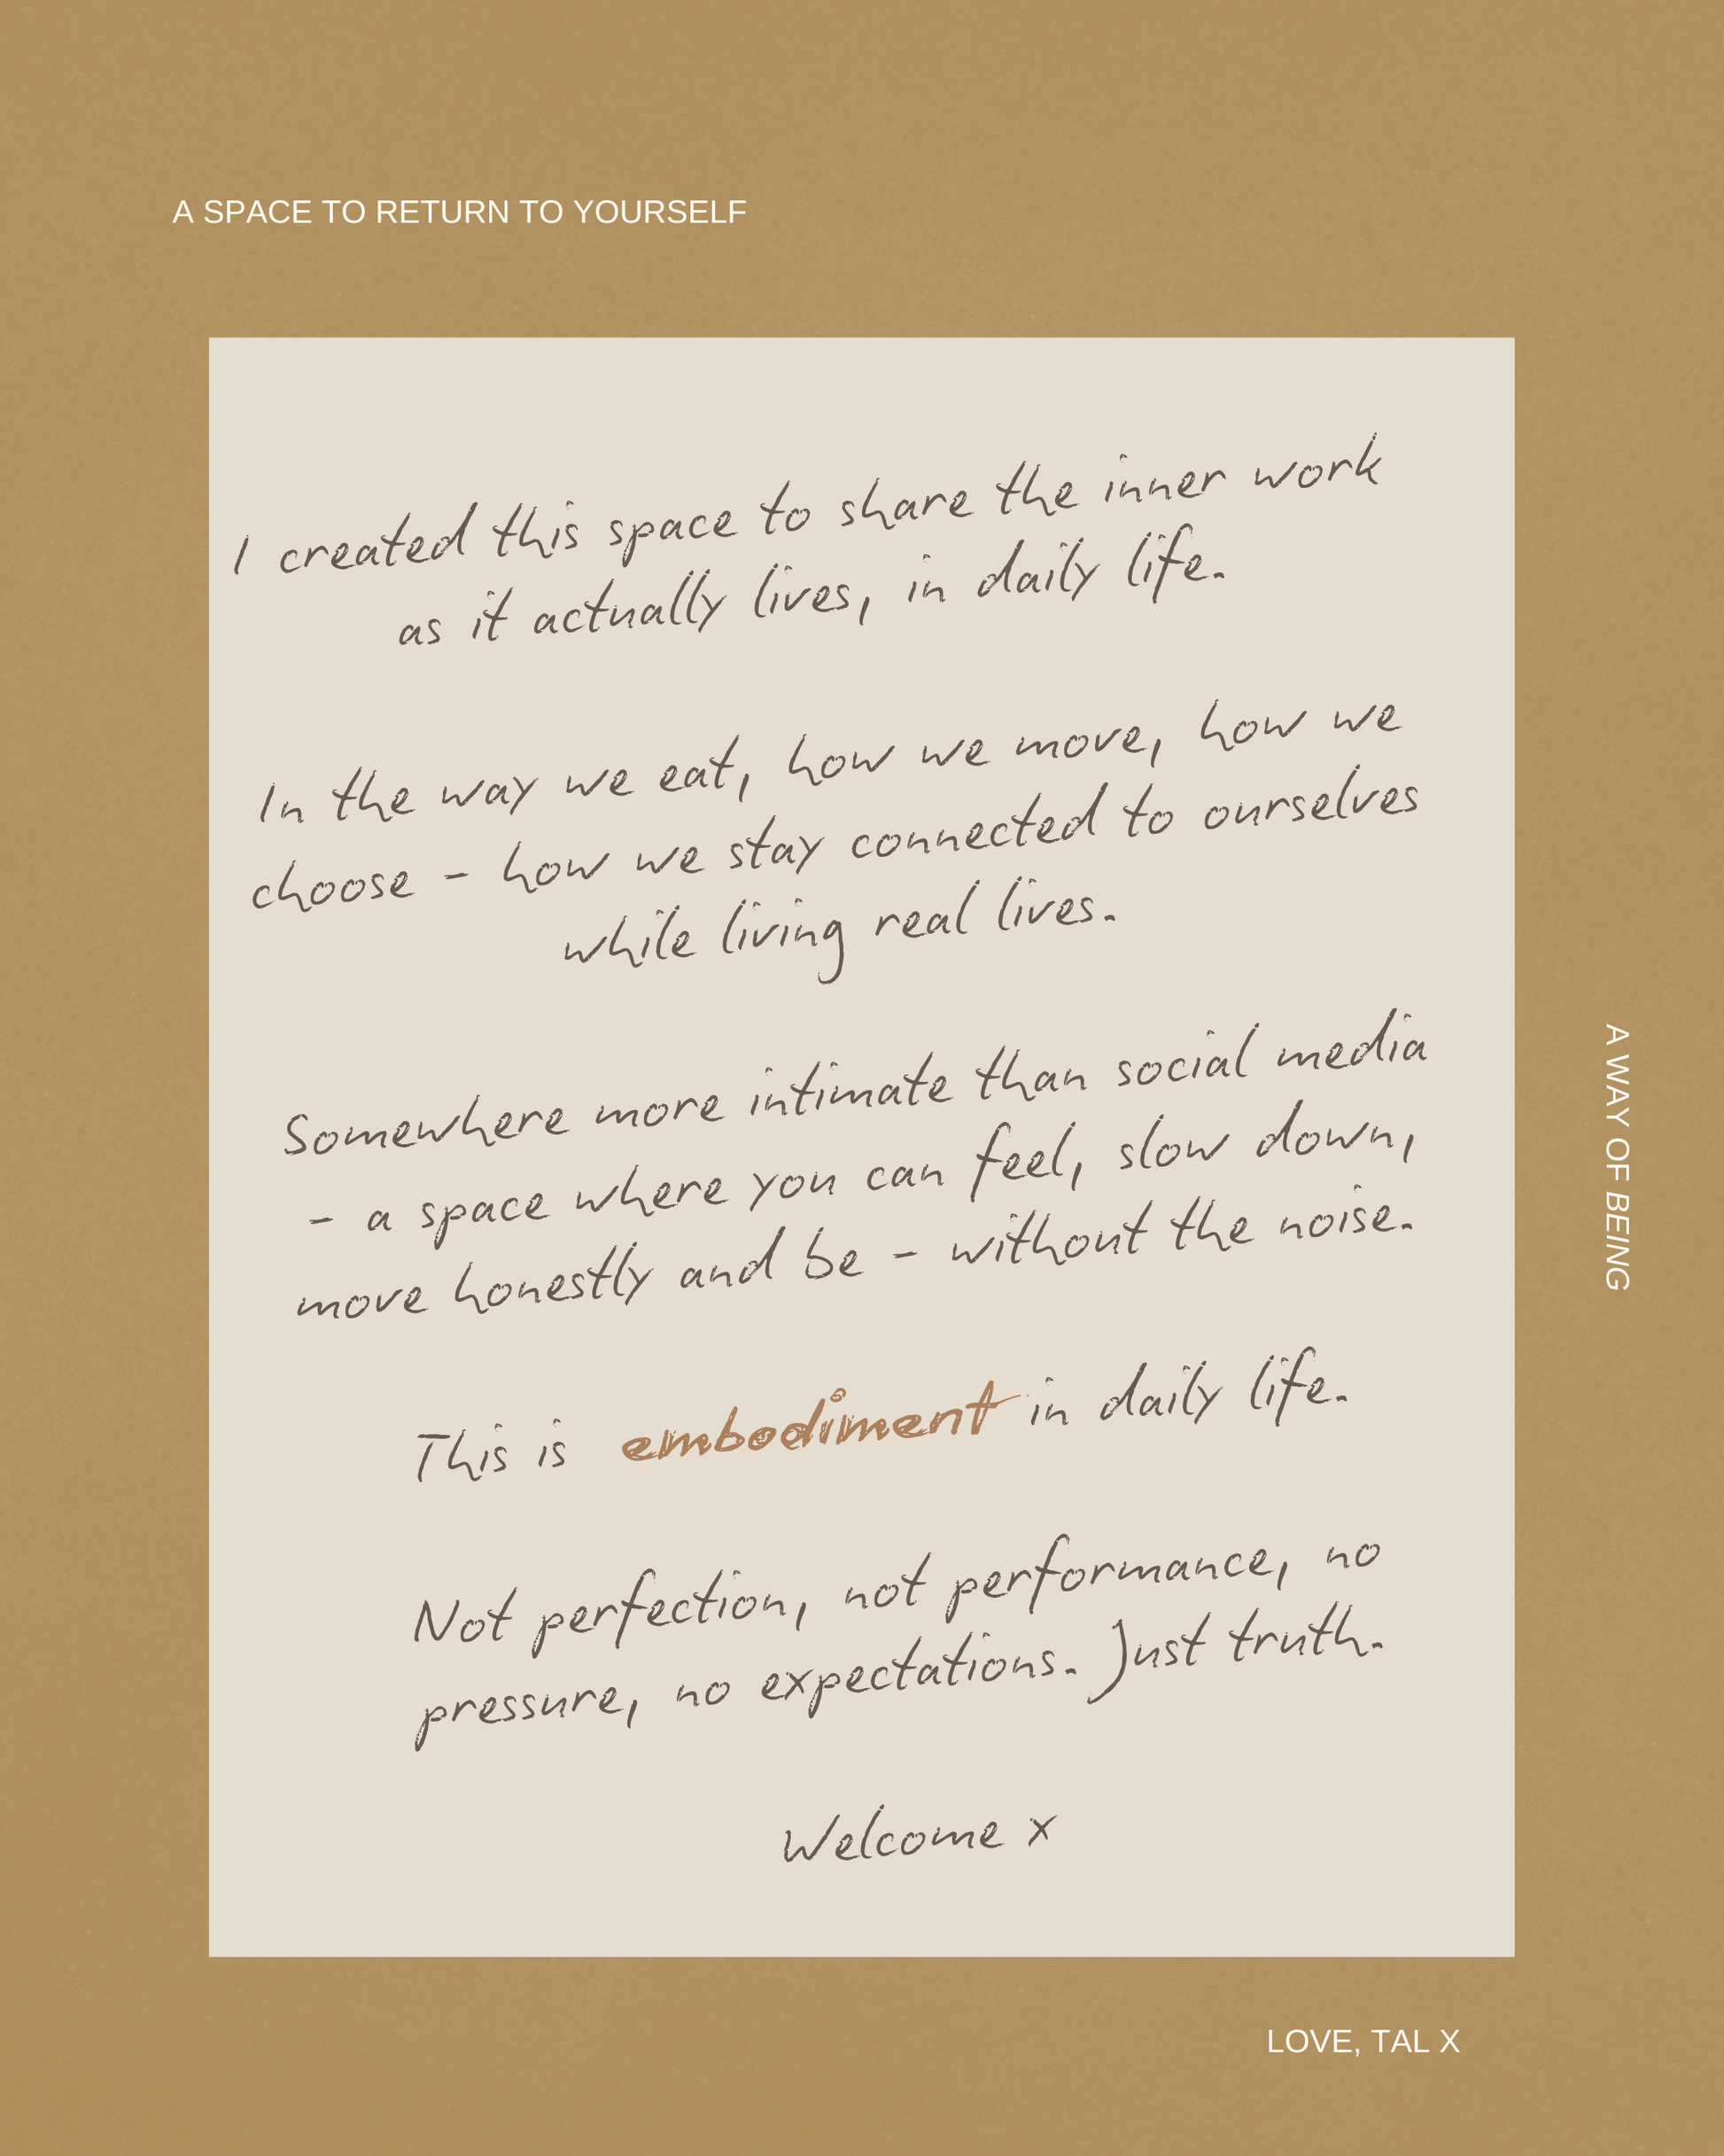 A SPACE TO RETURN TO YOURSELF
I created this space to share the inner work
as it actually lives, in daily life.
In the way we eat, how we move, how we
choose - how we stay connected to ourselves
while living real lives.
Somewhere more intimate than social media
- a space where you can feel, slow down,
move honestly and be - without the noise.
This is embodiment in daily life.
Not perfection, not performance, no
pressure, no expectations. Just truth.
Welcome x
A WAY OF BEING
LOVE, TAL X